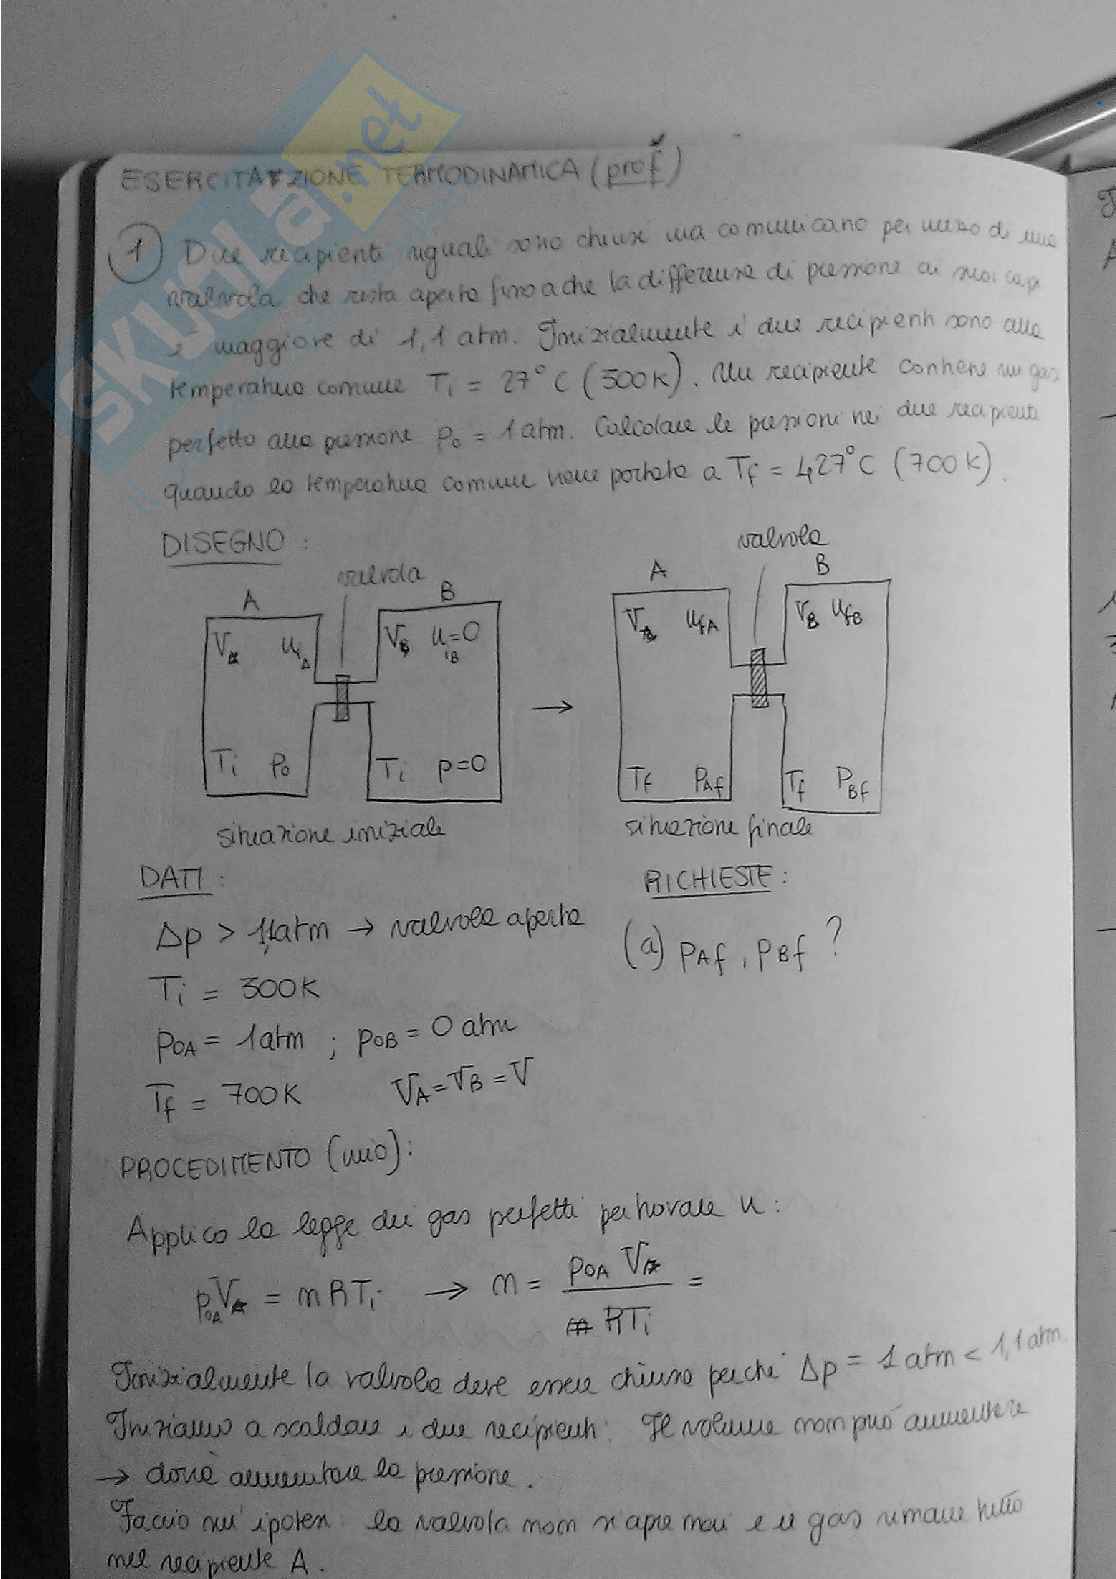 SKUOLA.net
ESERCITAZIONE TERMODINAMICA (prof)
1 Due recipienti uguali sono chiusi ma comunicano per mezzo di una
valvola che resta aperta fino a che la differenza di pressione ai suoi capi
è maggiore di 1,1 atm. Inizialmente i due recipienti sono alla
temperatura comune Ti = 27°C (300K). Un recipiente contiene un gas
perfetto alla pressione p0 = 1 atm. Calcolare le pressioni nei due recipienti
quando la temperatura comune viene portata a Tf = 427°C (700K).
DISEGNO:
valvola
valvola
A
B
A
B
VA uiA
VB uiB=0
VA ufA
VB ufB
Ti p0
Ti p=0
→
Tf PAf
Tf PBf
situazione iniziale
situazione finale
DATI:
RICHIESTE:
Δp > 1,1atm → valvola aperta
(a) pAf, pBf ?
Ti = 300K
p0A = 1atm ; p0B = 0 atm
Tf = 700K VA = VB = V
PROCEDIMENTO (mio):
Applico la legge dei gas perfetti per trovare n:
p0A VA = nRTi → n = p0A VA / RTi =
Inizialmente la valvola deve essere chiusa perché Δp = 1 atm < 1,1 atm.
Iniziamo a scaldare i due recipienti: Il volume non può aumentare
→ dovrà aumentare la pressione.
Faccio un'ipotesi: la valvola non si apre mai e il gas rimane tutto
nel recipiente A.